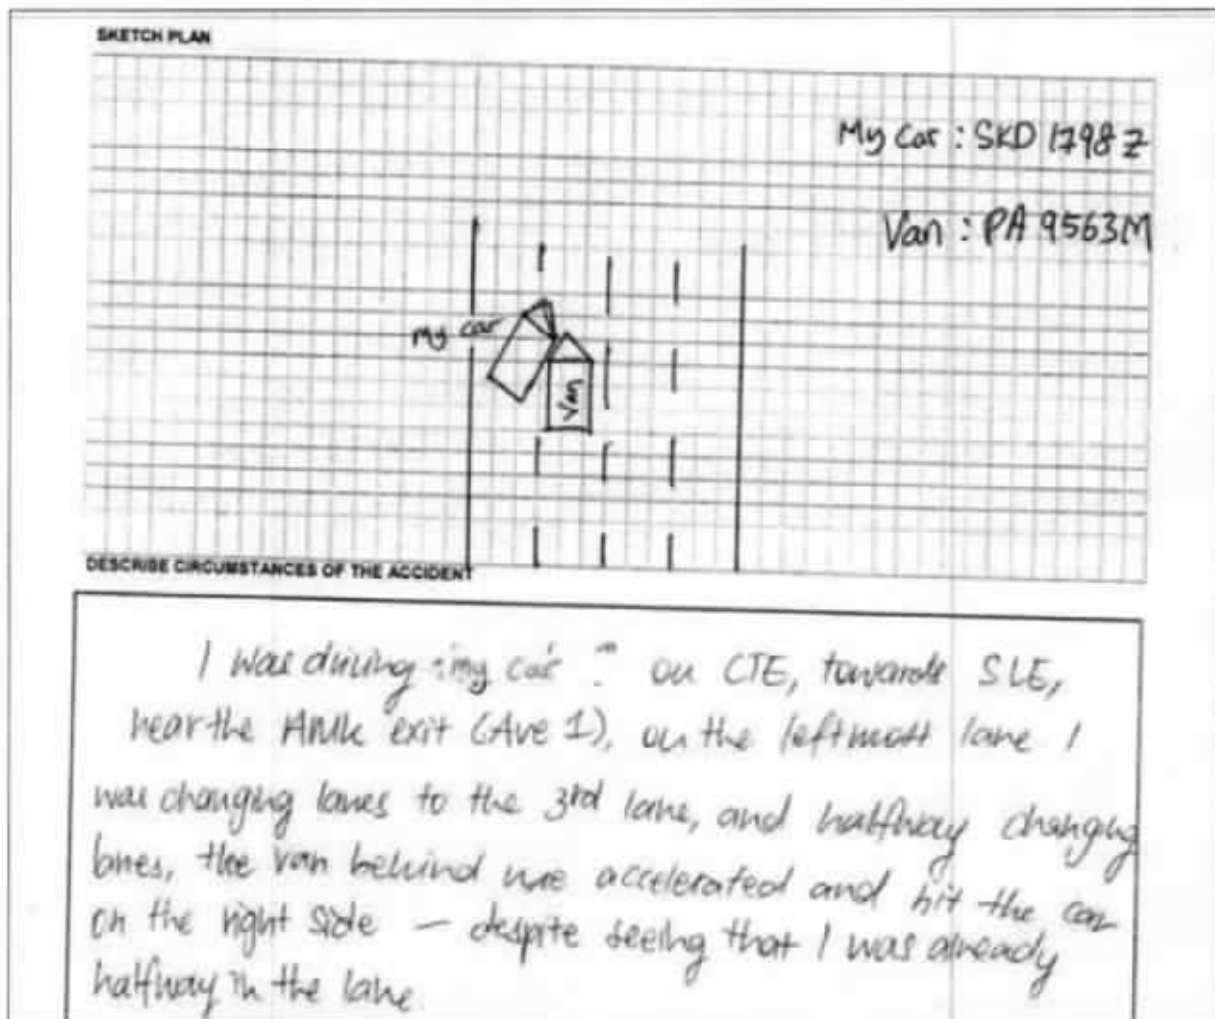 SKETCH PLAN
My Car : SKD 1798 Z
Van : PA 9563M
My car
Van
DESCRIBE CIRCUMSTANCES OF THE ACCIDENT
I was driving my car on CTE, towards SLE,
near the AMK exit (Ave 1), on the leftmost lane I
was changing lanes to the 3rd lane, and halfway changing
lanes, the van behind me accelerated and hit the car
on the right side — despite seeing that I was already
halfway in the lane.